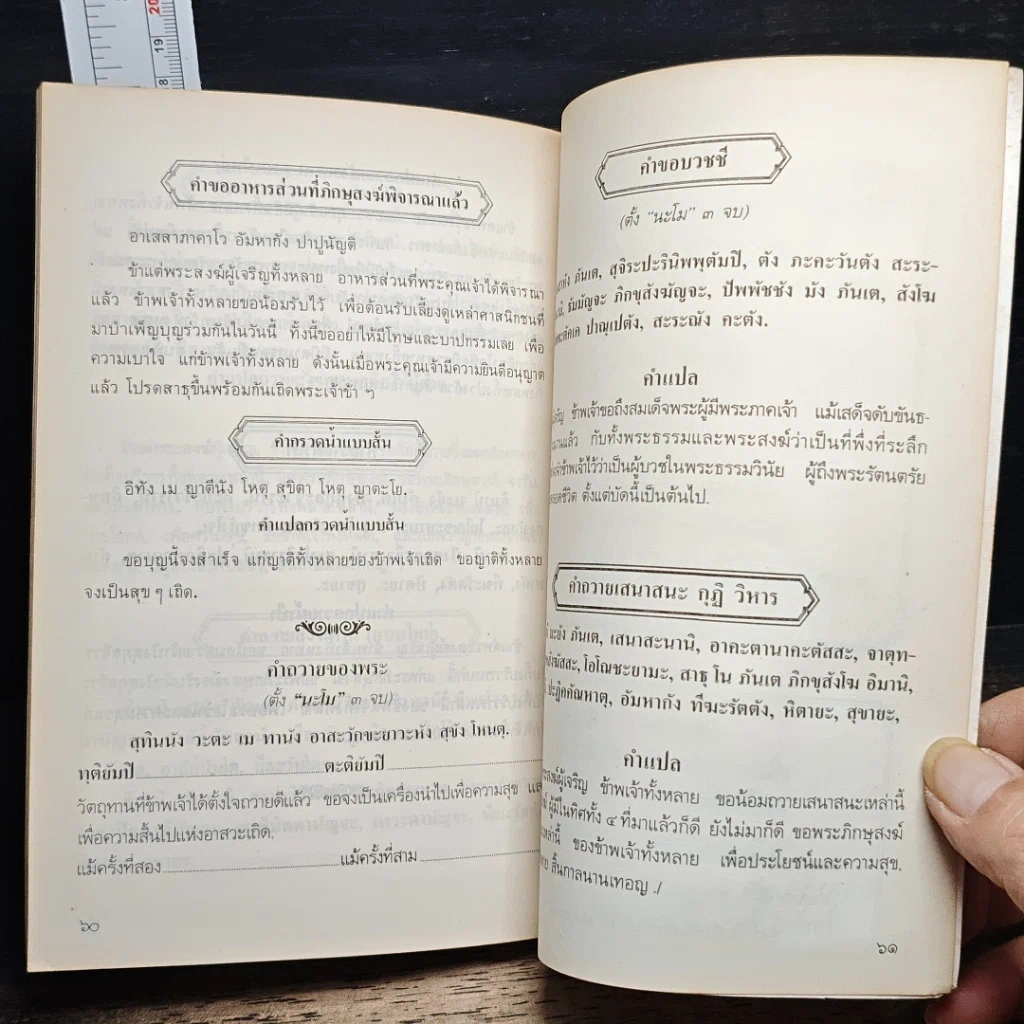 20
19
8
คำขออาหารส่วนที่ภิกษุสงฆ์พิจารณาแล้ว
อาเสสาภาคาโว อัมหากัง ปาปูนัญติ
ข้าแต่พระสงฆ์ผู้เจริญทั้งหลาย อาหารส่วนที่พระคุณเจ้าได้พิจารณา
แล้ว ข้าพเจ้าทั้งหลายขอน้อมรับไว้ เพื่อต้อนรับเลี้ยงดูเหล่าศาสนิกชนที่
มาบำเพ็ญบุญร่วมกันในวันนี้ ทั้งนี้ขออย่าให้มีโทษและบาปกรรมเลย เพื่อ
ความเบาใจ แก่ข้าพเจ้าทั้งหลาย ดังนั้นเมื่อพระคุณเจ้ามีความยินดีอนุญาต
แล้ว โปรดสาธุขึ้นพร้อมกันเถิดพระเจ้าข้า ๆ
คำกรวดน้ำแบบสั้น
อิทัง เม ญาตีนัง โหตุ สุขิตา โหตุ ญาตะโย.
คำแปลกรวดน้ำแบบสั้น
ขอบุญนี้จงสำเร็จ แก่ญาติทั้งหลายของข้าพเจ้าเถิด ขอญาติทั้งหลาย
จงเป็นสุข ๆ เถิด.
คำถวายของพระ
(ตั้ง “นะโม” ๓ จบ)
สุทินนัง วะตะ เม ทานัง อาสะวักขะยาวะหัง สุขัง โหนตุ.
ทุติยัมปิ..............................ตะติยัมปี..............................
วัตถุทานที่ข้าพเจ้าได้ตั้งใจถวายดีแล้ว ขอจงเป็นเครื่องนำไปเพื่อความสุข และ
เพื่อความสิ้นไปแห่งอาสวะเถิด.
แม้ครั้งที่สอง..............................แม้ครั้งที่สาม..............................
๖๐
คำขอบวชชี
(ตั้ง “นะโม” ๓ จบ)
ภันเต, สุจิระปะรินิพพุตัมปิ, ตัง ภะคะวันตัง สะระ-
ธัมมัญจะ ภิกขุสังฆัญจะ, ปัพพัชชัง มัง ภันเต, สังโฆ
ปาณุเปตัง, สะระณัง คะตัง.
คำแปล
ข้าพเจ้าขอถึงสมเด็จพระผู้มีพระภาคเจ้า แม้เสด็จดับขันธ-
แล้ว กับทั้งพระธรรมและพระสงฆ์ว่าเป็นที่พึ่งที่ระลึก
ข้าพเจ้าไว้ว่าเป็นผู้บวชในพระธรรมวินัย ผู้ถึงพระรัตนตรัย
ชีวิต ตั้งแต่บัดนี้เป็นต้นไป.
คำถวายเสนาสนะ กุฏิ วิหาร
มะยัง ภันเต, เสนาสะนานิ, อาคะตานาคะตัสสะ, จาตุท-
โอโณชะยามะ, สาธุ โน ภันเต ภิกขุสังโฆ อิมานิ,
ปะฏิคคัณหาตุ, อัมหากัง ทีฆะรัตตัง, หิตายะ, สุขายะ,
คำแปล
ผู้เจริญ ข้าพเจ้าทั้งหลาย ขอน้อมถวายเสนาสนะเหล่านี้
ผู้มีในทิศทั้ง ๔ ที่มาแล้วก็ดี ยังไม่มาก็ดี ขอพระภิกษุสงฆ์
เหล่านี้ ของข้าพเจ้าทั้งหลาย เพื่อประโยชน์และความสุข.
สิ้นกาลนานเทอญ ./
๖๑